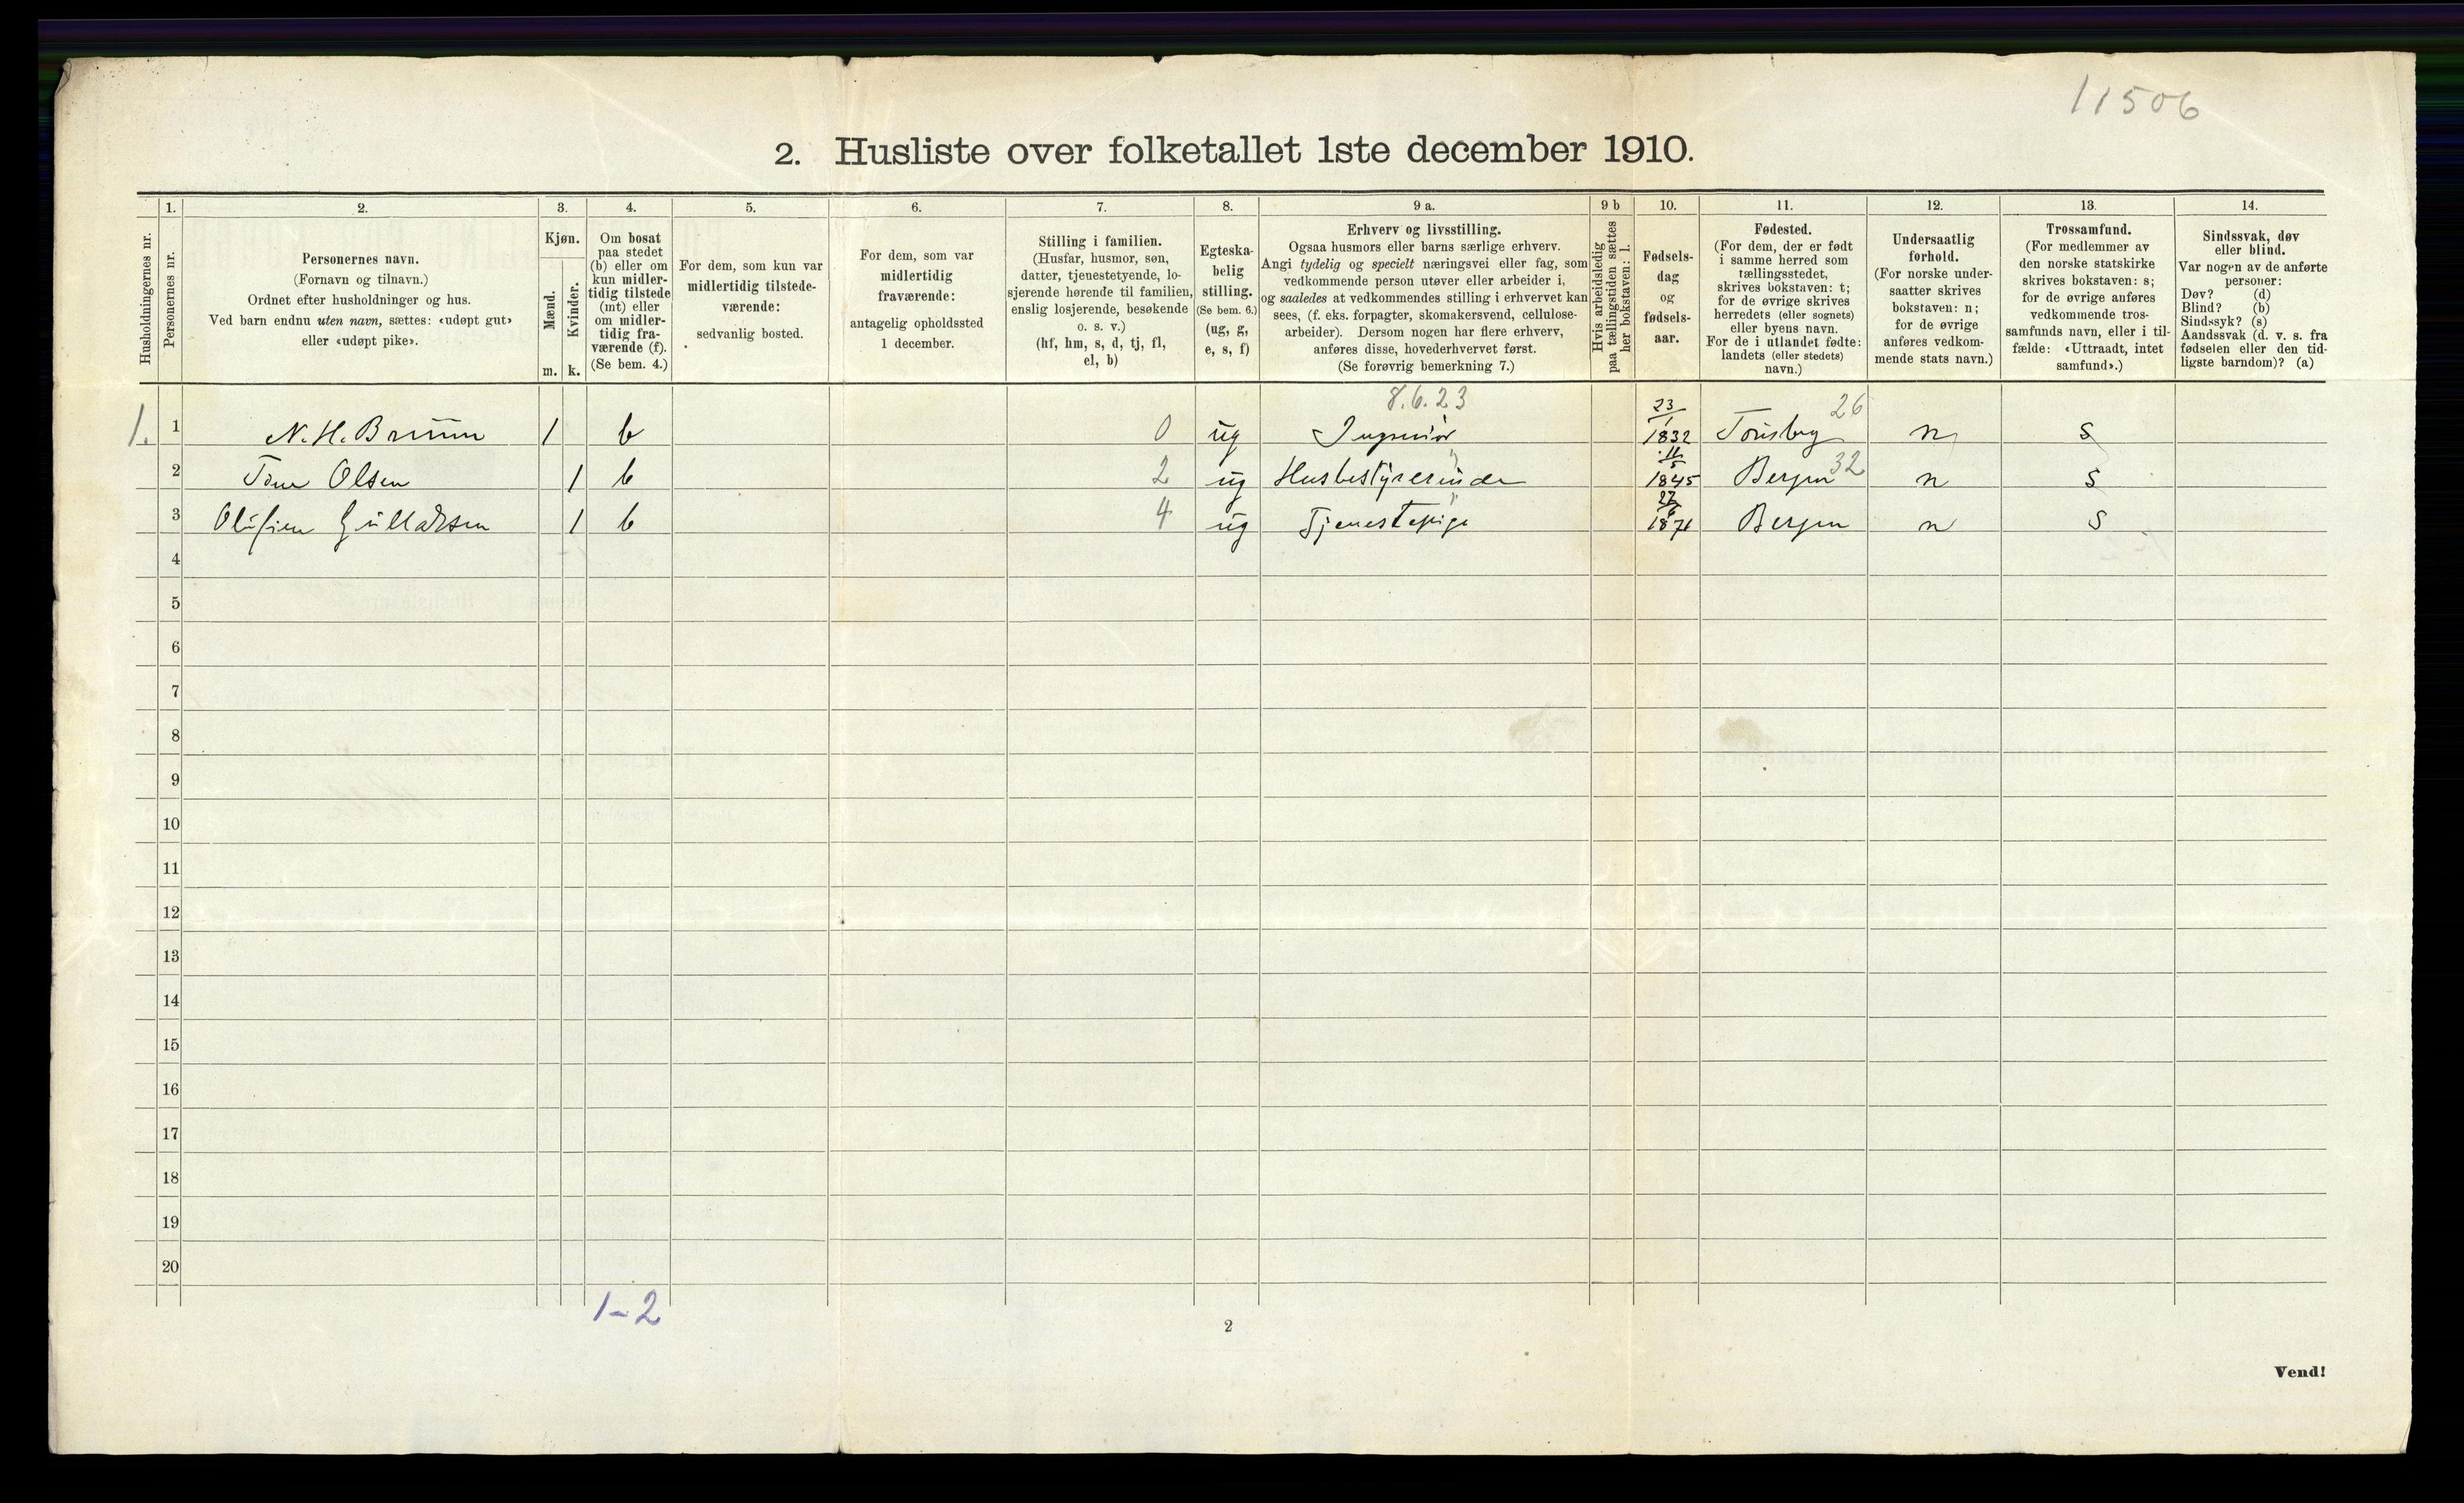 11506
2. Husliste over folketallet 1ste december 1910.
Husholdningernes nr.
1.
Personernes nr.
2.
Personernes navn.
(Fornavn og tilnavn.)
Ordnet efter husholdninger og hus.
Ved barn endnu uten navn, sættes: «udøpt gut»
eller «udøpt pike».
3.
Kjøn.
Mænd.
Kvinder.
m.
k.
4.
Om bosat
paa stedet
(b) eller om
kun midler-
tidig tilstede
(mt) eller
om midler-
tidig fra-
værende (f).
(Se bem. 4.)
5.
For dem, som kun var
midlertidig tilstede-
værende:
sedvanlig bosted.
6.
For dem, som var
midlertidig
fraværende:
antagelig opholdssted
1 december.
7.
Stilling i familien.
(Husfar, husmor, søn,
datter, tjenestetyende, lo-
sjerende hørende til familien,
enslig losjerende, besøkende
o. s. v.)
(hf, hm, s, d, tj, fl,
el, b)
8.
Egteska-
belig
stilling.
(Se bem. 6.)
(ug, g,
e, s, f)
9 a.
Erhverv og livsstilling.
Ogsaa husmors eller barns særlige erhverv.
Angi tydelig og specielt næringsvei eller fag, som
vedkommende person utøver eller arbeider i,
og saaledes at vedkommendes stilling i erhvervet kan
sees, (f. eks. forpagter, skomakersvend, cellulose-
arbeider). Dersom nogen har flere erhverv,
anføres disse, hovederhvervet først.
(Se forøvrig bemerkning 7.)
9 b
Hvis arbeidsledig
paa tællingstiden sættes
her bokstaven: l.
10.
Fødsels-
dag
og
fødsels-
aar.
11.
Fødested.
(For dem, der er født
i samme herred som
tællingsstedet,
skrives bokstaven: t;
for de øvrige skrives
herredets (eller sognets)
eller byens navn.
For de i utlandet fødte:
landets (eller stedets)
navn.)
12.
Undersaatlig
forhold.
(For norske under-
saatter skrives
bokstaven: n;
for de øvrige
anføres vedkom-
mende stats navn.)
13.
Trossamfund.
(For medlemmer av
den norske statskirke
skrives bokstaven: s;
for de øvrige anføres
vedkommende tros-
samfunds navn, eller i til-
fælde: «Uttraadt, intet
samfund».)
14.
Sindssvak, døv
eller blind.
Var nogen av de anførte
personer:
Døv? (d)
Blind? (b)
Sindssyk? (s)
Aandssvak (d. v. s. fra
fødselen eller den tid-
ligste barndom)? (a)
8.6.23
1. 1 N. H. Bruun 1 b 0 ug Ingeniør 23/1 1832 Tønsberg 26 n s
2 Olsen 1 b 2 ug Husbestyrerinde 11/5 1845 Bergen 32 n s
3 1 b 4 ug Tjenestepige 1871 Bergen n s
4
5
6
7
8
9
10
11
12
13
14
15
16
17
18
19
20
1-2
2
Vend!